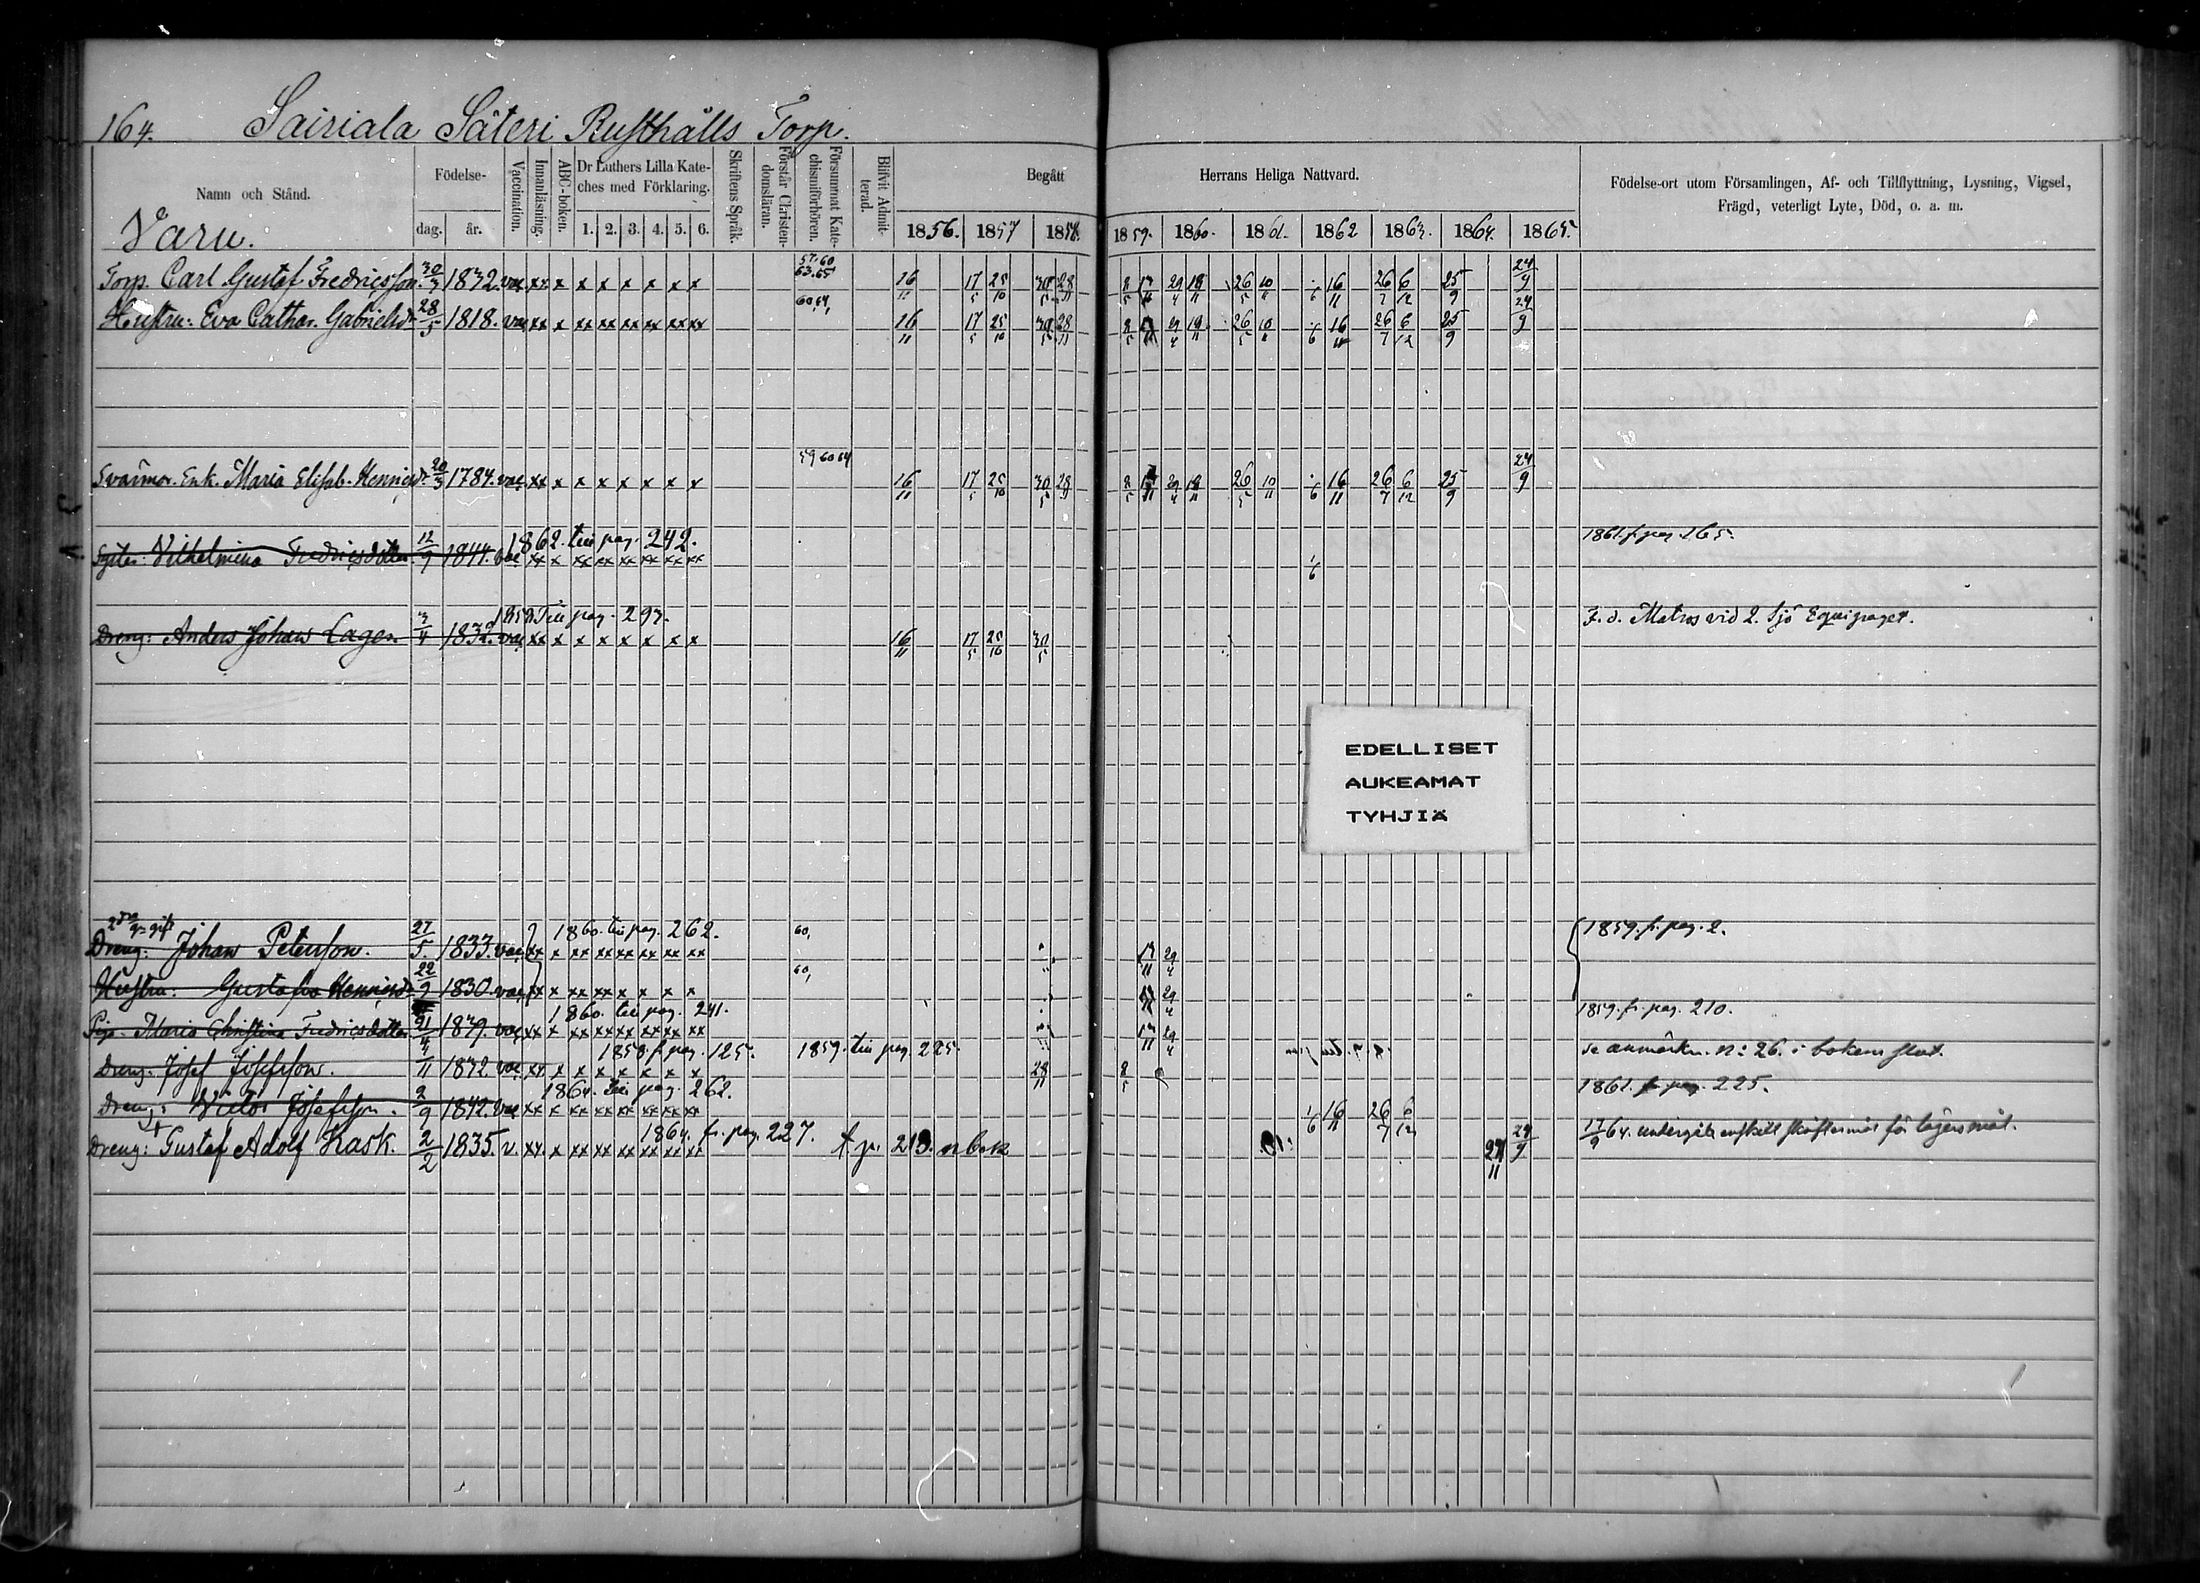 164. Sairiala Säteri Rusthålls Torp.
Namn och Stånd.
Varu.
Födelse-
dag. år.
Vaccination.
Innanläsning.
ABC-boken.
Dr Luthers Lilla Kate-
ches med Förklaring.
1. 2. 3. 4. 5. 6.
Skriftens Språk.
Förstår Christen-
domsläran.
Försummat Kate-
chismiförhören.
Blifvit Admit-
terad.
Begått Herrans Heliga Nattvard.
1856. 1857 1858. 1859. 1860. 1861. 1862 1863. 1864. 1865.
Födelse-ort utom Församlingen, Af- och Tillflyttning, Lysning, Vigsel,
Frägd, veterligt Lyte, Död, o. a. m.
57.60
63.65
Torp. Carl Gustaf Fredricsson. 30/3 1832. vac xx x x x x x x x 16/11 17/5 25/10 30/5 28/11 8/5 29/4 18/11 26/5 10/11 16/11 26/7 6/12 25/9 24/9
Hustru: Eva Cathar. Gabrielsdr 28/5 1818. vac xx x xx xx xx xx xx xx 16/11 17/5 25/10 30/5 28/11 8/5 29/4 18/11 26/5 10/11 16/11 26/7 6/12 25/9 24/9
59 60 64
Svärmor. Enk. Maria Elisab. Henricsdr 20/3 1784. vac xx x x x x x x x 16/11 17/5 25/10 30/5 28/11 8/5 29/4 18/11 26/5 10/11 16/11 26/7 6/12 25/9 24/9
1862. till pag. 242. 1861. f. pag. 165.
Syster: Vilhelmina Fredricsdotter 12/9 1844. vac xx x xx xx xx xx xx xx 1/6
1858 Till pag. 293. F. d. Matros vid 2. Sjö Equipaget.
Dreng: Anders Johan Lager. 3/4 1832. vac xx x x x x x x x 16/11 17/5 25/10 30/5
EDELLISET
AUKEAMAT
TYHJIÄ
2dra g. gift 1860. till pag. 262. 60, 1859. fr. pag. 2.
Dreng: Johan Petersson. 27/5 1833. vac xx x xx xx xx xx xx xx 17/11 29/4
60,
Hustru: Gustafva Henricsdr 22/9 1830. vac xx x xx xx x x x x 17/11 29/4
1860. till pag. 241. 1859. fr. pag. 210.
Pig. Maria Christina Fredricsdotter 21/4 1839. vac xx x xx xx xx xx xx xx 17/11 29/4
1858. f. pag. 125. 1859. till pag. 225. Se anmärkn. n: 26. i bokens slut.
Dreng: Josef Josefsson. 4/11 1842. vac xx x x x x x x x 28/11 8/5
1864. till pag. 262. 1861. fr. pag. 225.
Dreng: Victor Josefsson. 2/9 1842. vac xx x xx xx xx xx xx xx 1/6 16/11 26/7 6/12
1864. fr. pag. 227. t. p. 213. n bok 17/9 64. undergått enskilt skriftermål för lägersmål.
Dreng: Gustaf Adolf Kask. 2/2 1835. v. xx x xx xx xx xx xx xx 27/11 24/9